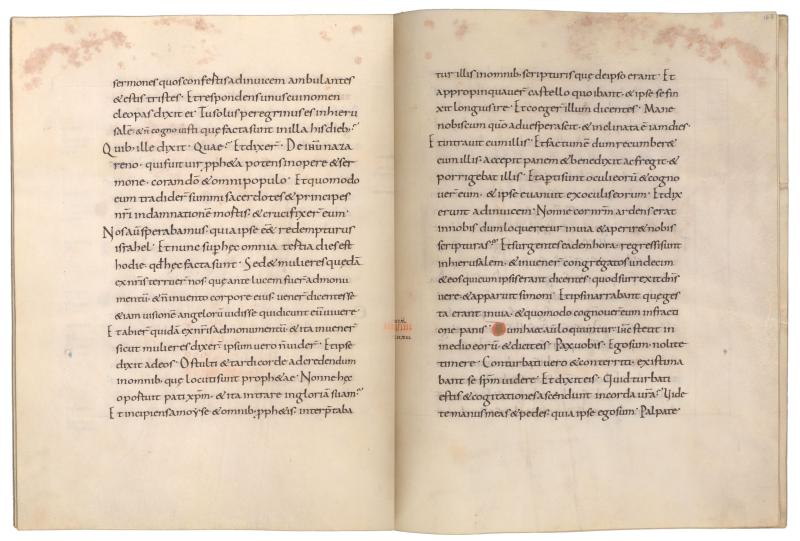 sermones quos confertis adinuicem ambulantes
& estis tristes · Et respondens unus cui nomen
cleopas dixit ei · Tu solus peregrinus es in hieru
salē · & n̄ cogno uisti quę facta sunt in illa his dieb;
Quib; ille dixit · Quae · Et dixer̄ · De ihū naza
reno · qui fuit uir pph&a potens in opere & ser
mone · coram dō & omni populo · Et quomodo
eum tradider̄ summi sacerdotes & principes
nr̄i in damnationē mortis · & crucifixer̄ eum ·
Nos aūt sperabamus · quia ipse ēē redempturus
israhel · Et nunc sup hęc omnia tertia dies est
hodie · qđ hęc facta sunt · Sed & mulieres quędā
ex nr̄is terruer̄ nos · quę ante lucem fuer̄ ad monu
mentū · & n̄ inuento corpore eius · uener̄ dicentes se
& iam uisionē angelorū uidisse qui dicunt eū uiuere ·
Et abier̄ quidā ex nr̄is ad monumentū · & ita inuener̄
sicut mulieres dixer̄ · ipsum uero n̄ uider̄ · Et ipse
dixit ad eos · O stulti & tardi corde ad credendum
in omnib; quę locuti sunt proph&ae · Nonne hęc
oportuit pati xp̄m · & ita intrare in gloriā suam ·
Et incipiens a moyse & omnib; pph&is · interp̄taba
168
tur illis in omnib; scripturis quę de ipso erant · Et
appropinquauer̄ castello quo ibant · & ipse se fin
xit longius ire · Et coeger̄ illum dicentes · Mane
nobiscum qūo aduesperascit · & inclinata ē iam dies ·
Et intrauit cum illis · Et factum ē dum recumber&
cum illis · accepit panem & benedixit ac fregit · &
porrigebat illis · Et apti sunt oculi eorū & cogno
uer̄ eum · & ipse euanuit ex oculis eorum · Et dix
erunt adinuicem · Nonne cor nr̄m ardens erat
in nobis dum loqueretur in uia & aperir& nobis
scripturas · Et surgentes eadem hora · regressi sunt
in hierusalem · & inuener̄ congregatos undecim
& eos qui cum ipsis erant dicentes · quod surrexit dn̄s
uere · & apparuit simoni · Et ipsi narrabant quę ges
ta erant in uia · & quomodo cognouer̄ eum in fracti
one panis · Dum haec aūt loquuntur · ih̄c stetit in
medio eorū · & dicit eis · Pax uobis · Ego sum · nolite
timere · Conturbati uero & conterriti · existima
bant se sp̄m uidere · Et dixit eis · Quid turbati
estis & cogitationes ascendunt in corda ur̄a · Uide
te manus meas & pedes · quia ipse ego sum · Palpate